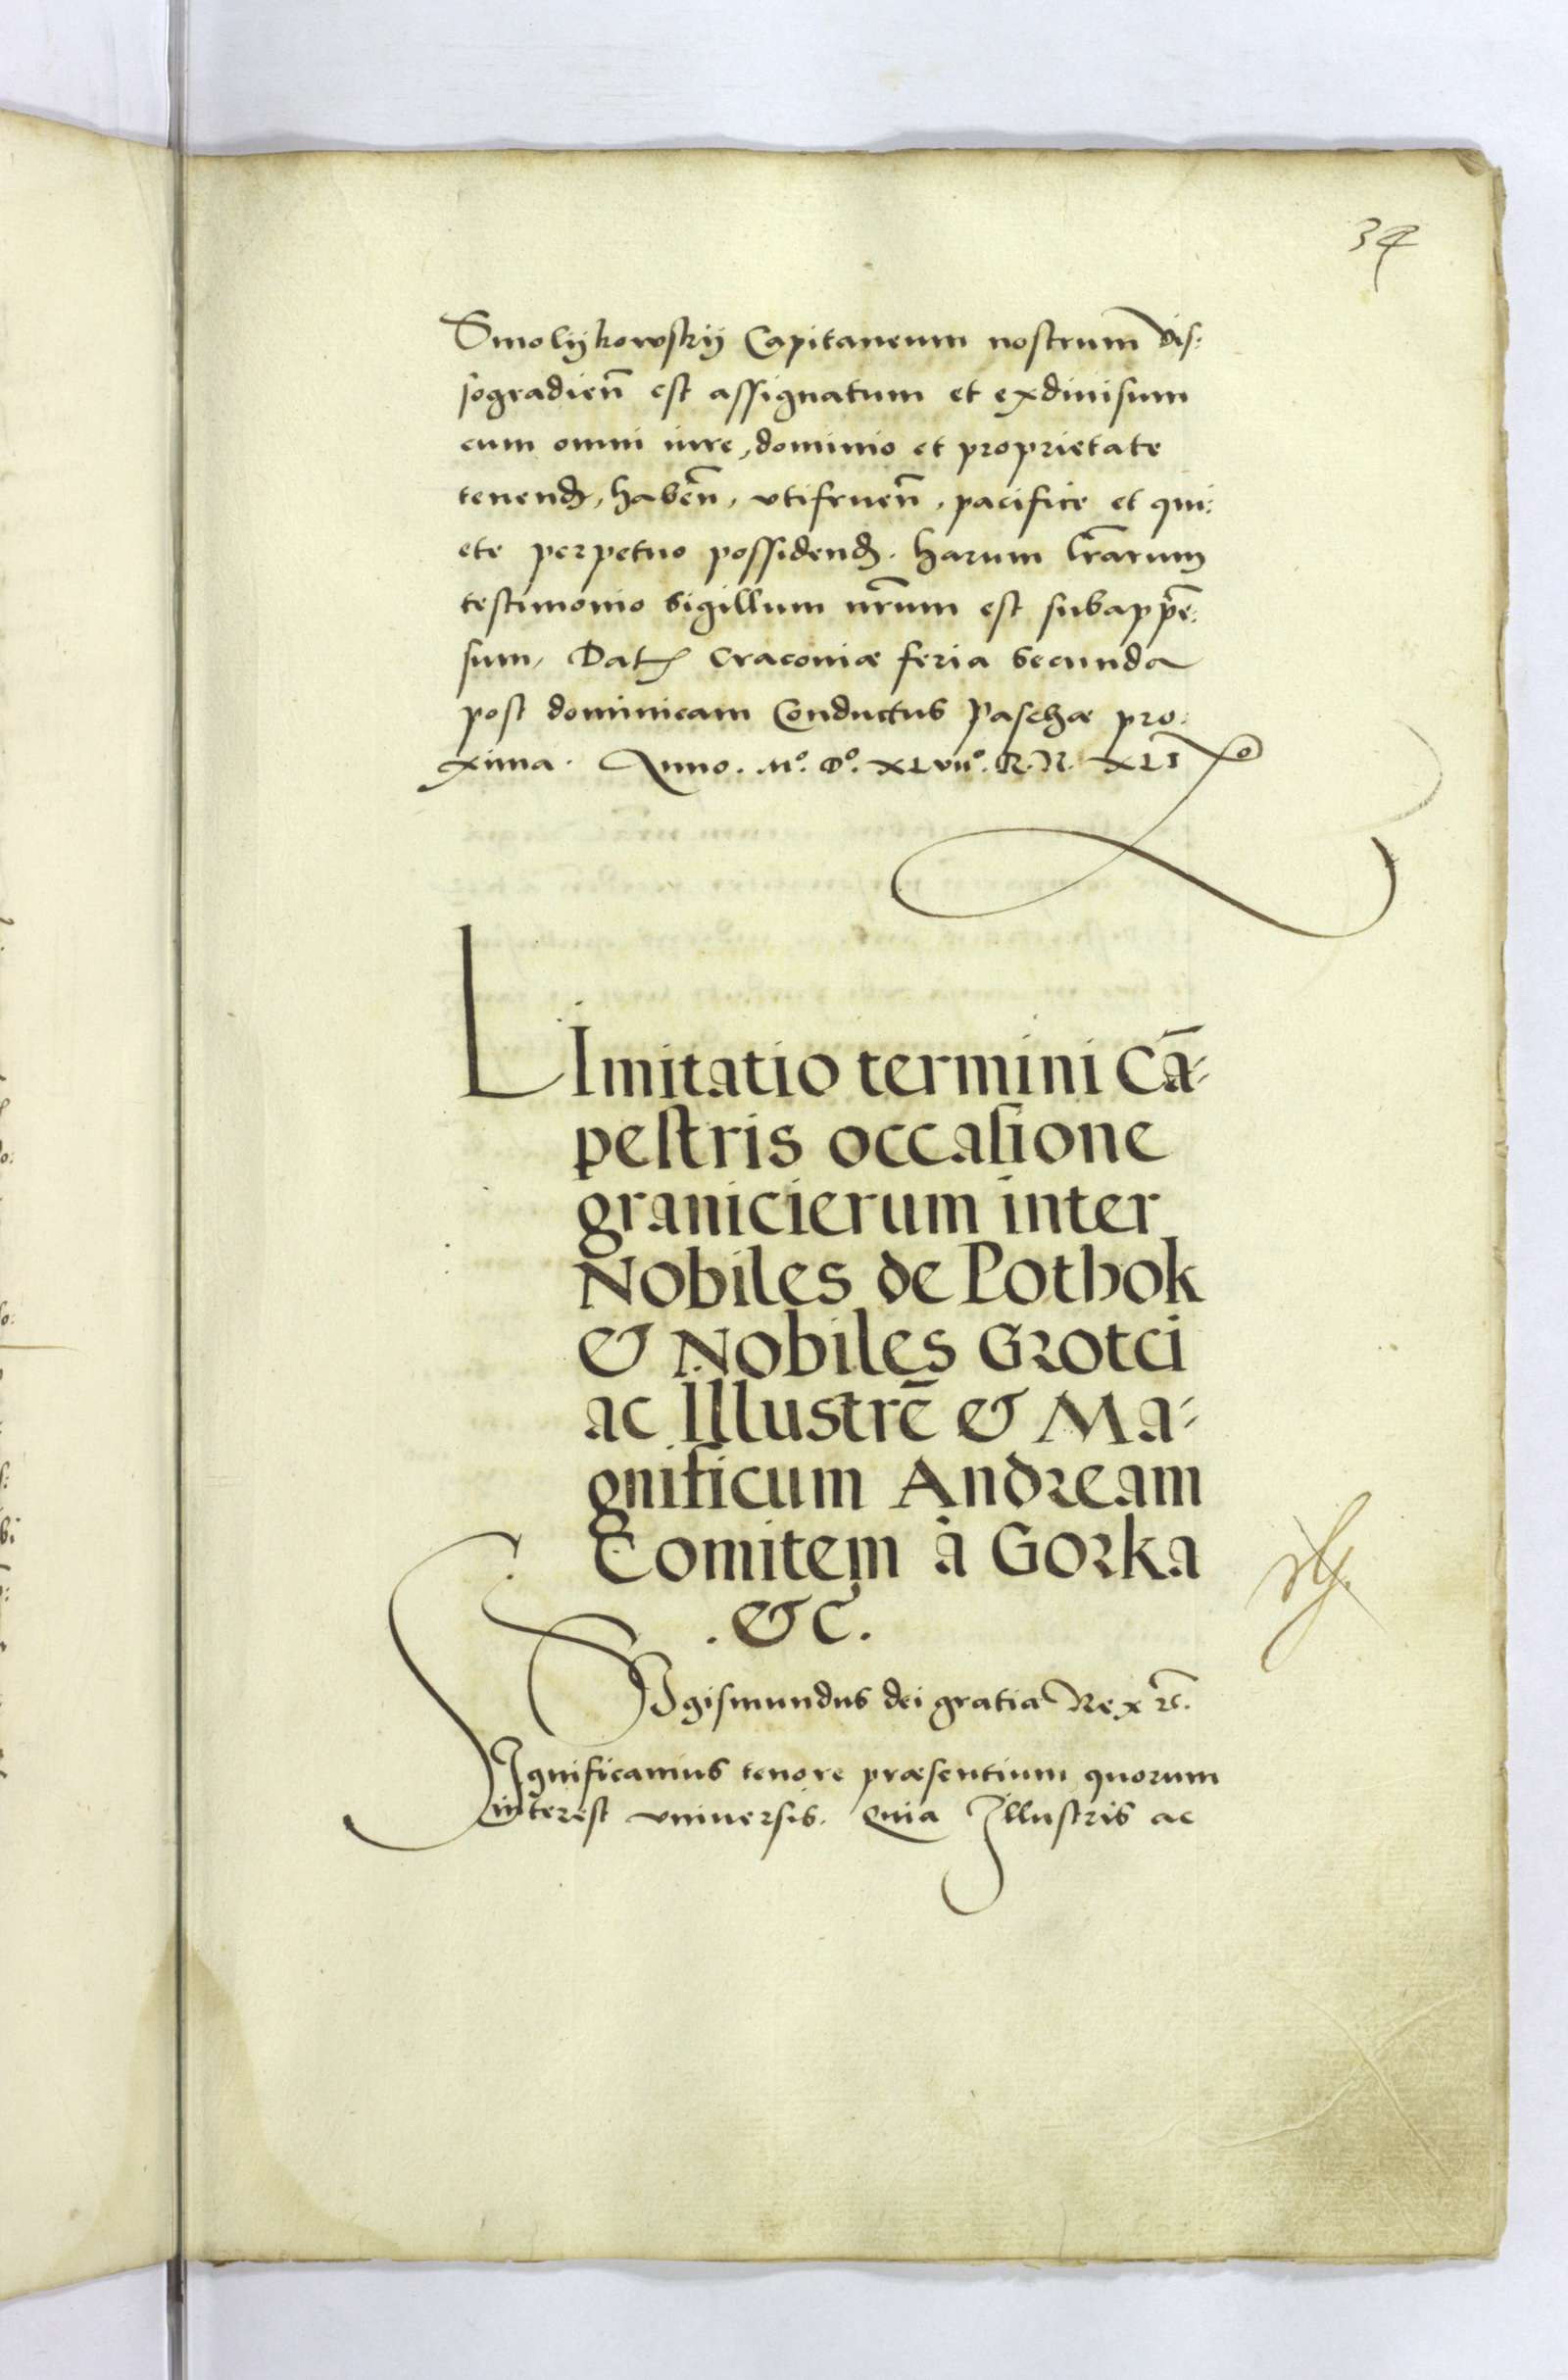 34
Smolijkowskij Capitaneum nostrum vis:
sogradien̄ est assignatum et exdiuisum
cum omni iure, dominio et proprietate
tenend, haben̄, vtifruen̄, pacifice et qui:
ete perpetuo possidend. harum lr̄arum
testimonio sigillum nr̄um est subappē:
sum, Dat Cracouiæ feria secunda
post dominicam Conductus Paschæ pro:
xima. Anno. Mº. Dº. XLVIIº. R. N. XLIº
LImitatio termini Cā-
pestris occasione
granicierum inter
Nobiles de Pothok
& Nobiles Grotci
ac Illustrē & Ma-
gnificum Andream
Comitem à Gorka
.&c.
SIgismundus dei gratia Rex rc̄.
SIgnificamus tenore præsentium quorum
interest vniuersis. Quia Illustris ac